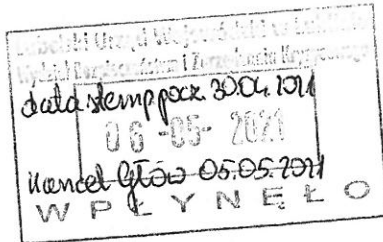 Lubelski Urząd Wojewódzki w Lublinie
Wydział Bezpieczeństwa i Zarządzania Kryzysowego
data stemp. pocz. 30.04.2021
06 -05- 2021
Kancel. Głów 05.05.2021
WPŁYNĘŁO